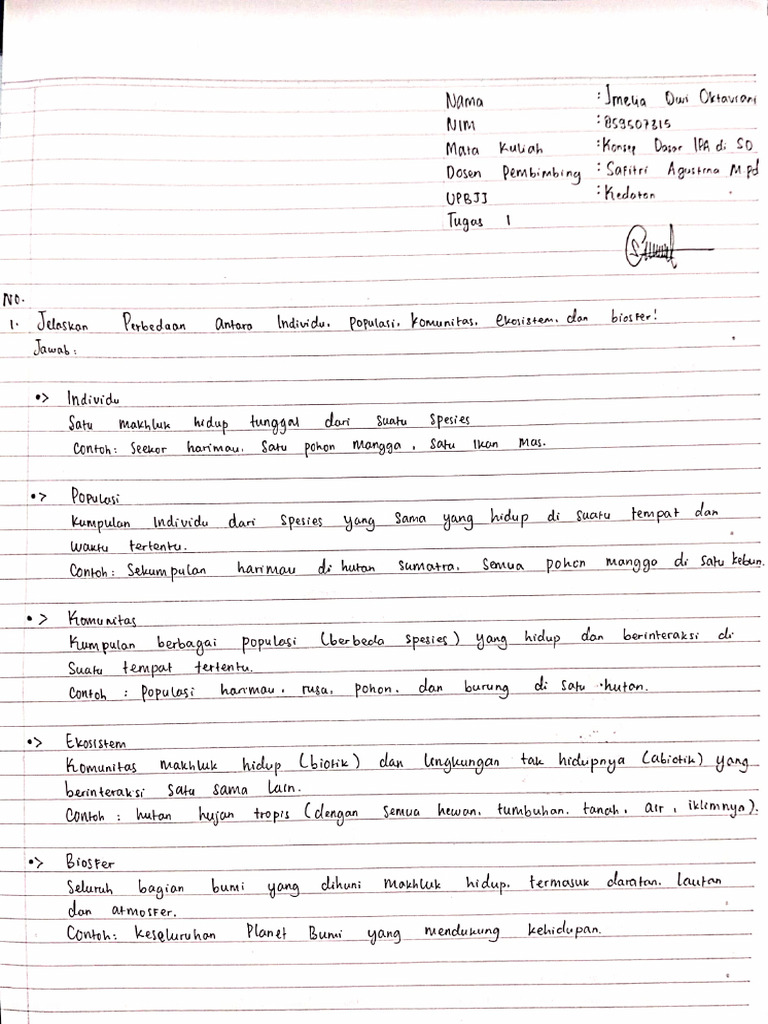 Nama : Imelia Dwi Oktaviani
NIM : 859507315
Mata Kuliah : Konsep Dasar IPA di SD
Dosen Pembimbing : Safitri Agustina M.Pd
UPBJJ : Kedaton
Tugas 1
No.
1. Jelaskan Perbedaan antara Individu, populasi, komunitas, ekosistem, dan biosfer!
Jawab:
•> Individu
Satu makhluk hidup tunggal dari suatu spesies
Contoh: Seekor harimau, Satu pohon mangga, satu ikan mas.
•> Populasi
Kumpulan Individu dari spesies yang sama yang hidup di suatu tempat dan
waktu tertentu.
Contoh: Sekumpulan harimau di hutan sumatra, semua pohon mangga di satu kebun.
•> Komunitas
Kumpulan berbagai populasi (berbeda spesies) yang hidup dan berinteraksi di
suatu tempat tertentu.
Contoh : populasi harimau, rusa, pohon, dan burung di satu hutan.
•> Ekosistem
Komunitas makhluk hidup (biotik) dan lingkungan tak hidupnya (abiotik) yang
berinteraksi satu sama lain.
Contoh : hutan hujan tropis (dengan semua hewan, tumbuhan, tanah, air, iklimnya).
•> Biosfer
Seluruh bagian bumi yang dihuni makhluk hidup, termasuk daratan, lautan
dan atmosfer.
Contoh: keseluruhan Planet Bumi yang mendukung kehidupan.